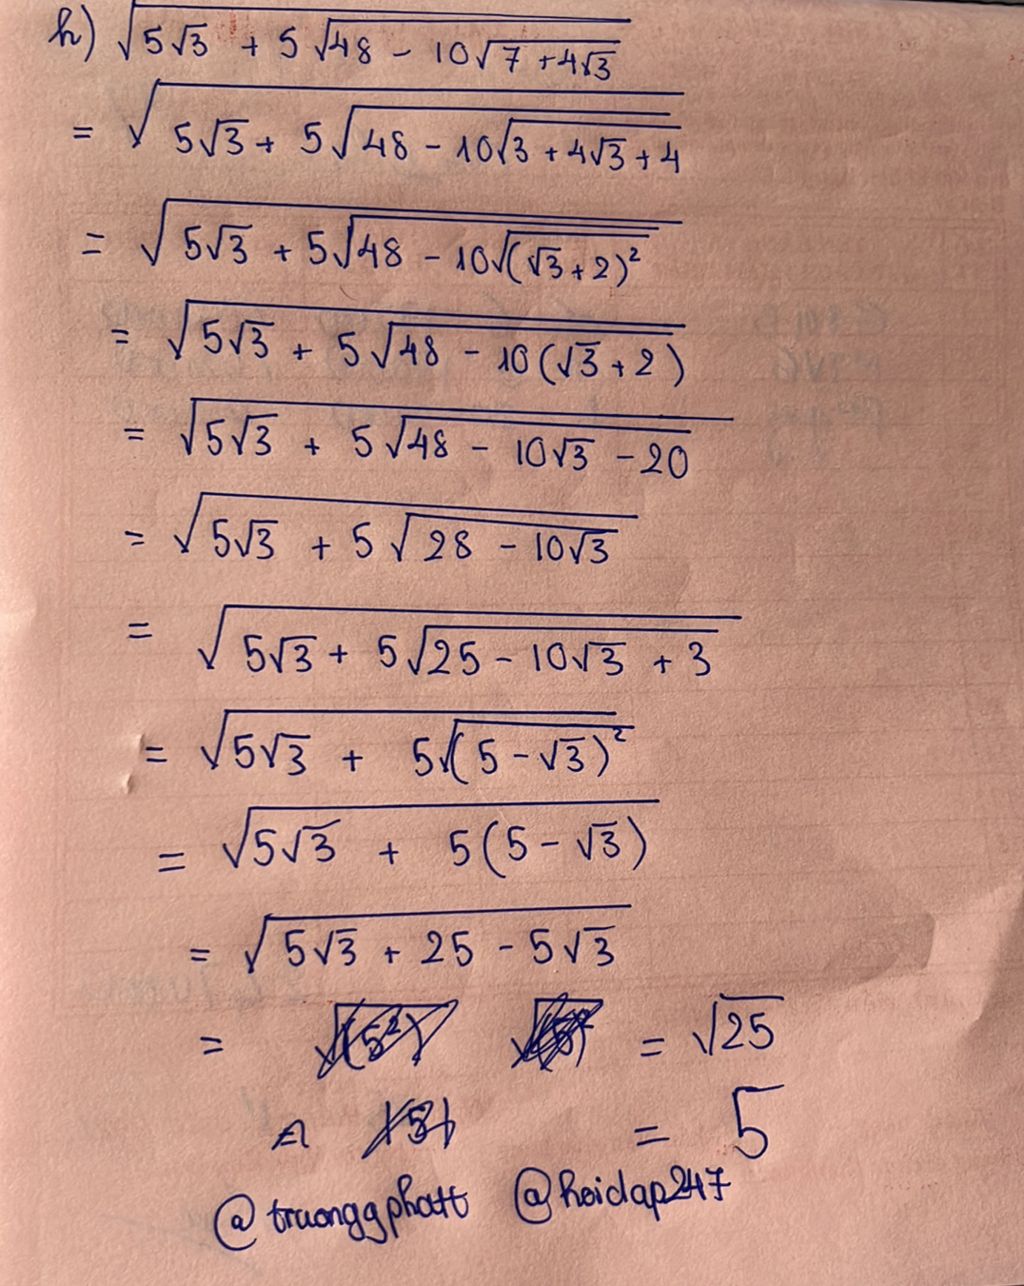 h) √(5√3 + 5√(48 - 10√(7 + 4√3)))
= √(5√3 + 5√(48 - 10√(3 + 4√3 + 4)))
= √(5√3 + 5√(48 - 10√((√3 + 2)²)))
= √(5√3 + 5√(48 - 10(√3 + 2)))
= √(5√3 + 5√(48 - 10√3 - 20))
= √(5√3 + 5√(28 - 10√3))
= √(5√3 + 5√(25 - 10√3 + 3))
= √(5√3 + 5√((5 - √3)²))
= √(5√3 + 5(5 - √3))
= √(5√3 + 25 - 5√3)
= = √25
= = 5
@truonggphatt @hoidap247